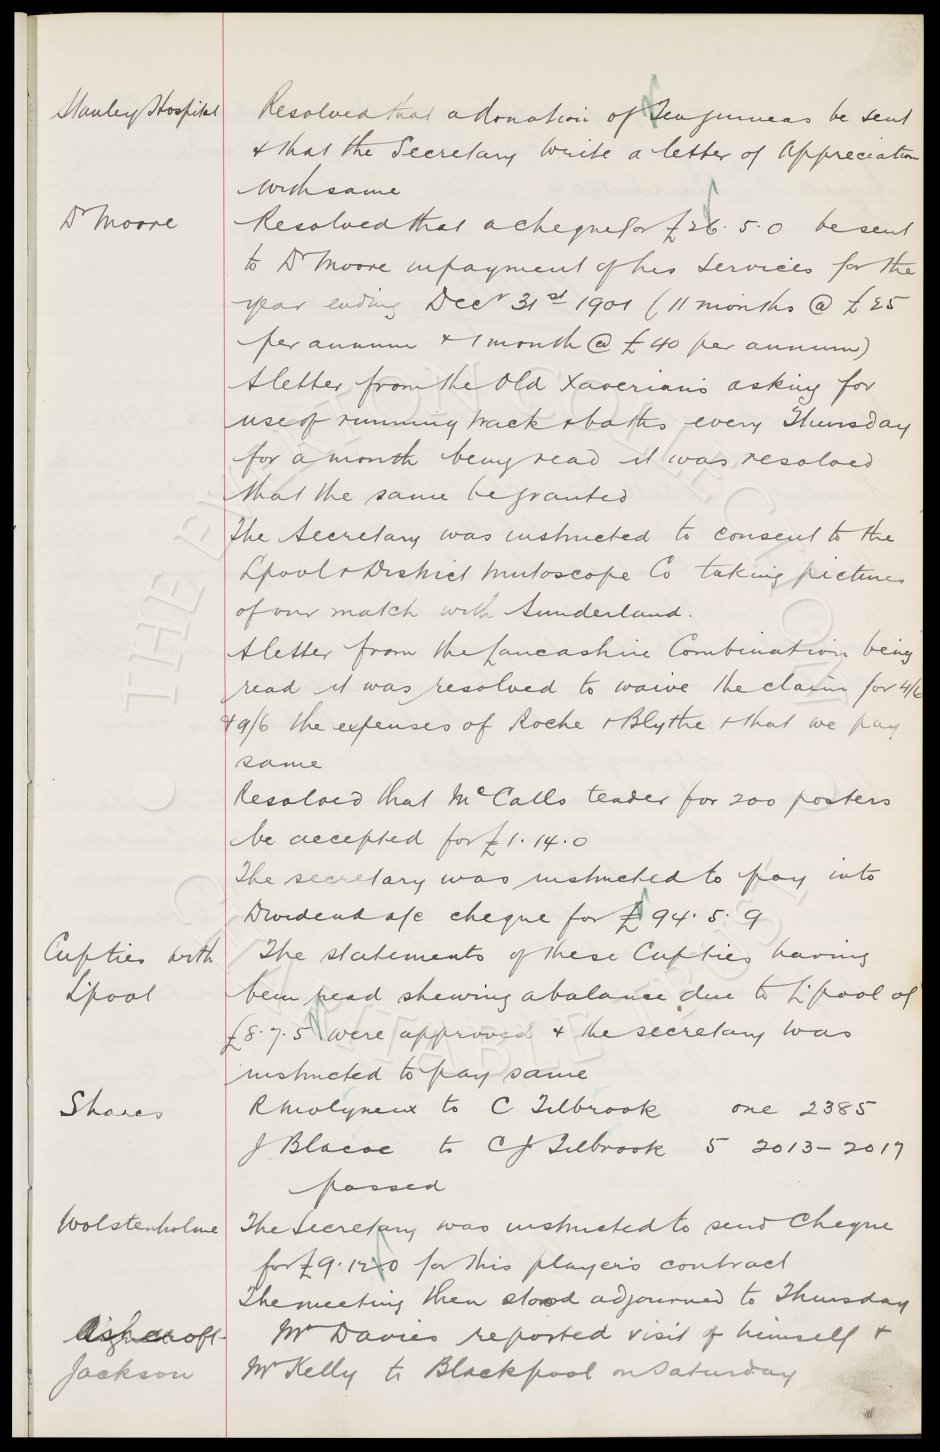 Stanley Hospital Resolved that a donation of Ten guineas be sent
& that the Secretary write a letter of Appreciation
with same
Dr Moore Resolved that a cheque for £26.5.0 be sent
to Dr Moore in payment of his services for the
year ending Decr 31st 1901 (11 months @ £25
per annum & 1 month @ £40 per annum)
A letter from the Old Xaverians asking for
use of running track & baths every Thursday
for a month being read it was resolved
that the same be granted
The Secretary was instructed to consent to the
Lpool & District Mutoscope Co taking pictures
of our match with Sunderland.
A letter from the Lancashire Combination being
read it was resolved to waive the claim for 4/6
& 9/6 the expenses of Roche & Blythe & that we pay
same
Resolved that McCalls tender for 200 posters
be accepted for £1.14.0
The secretary was instructed to pay into
Dividend a/c cheque for £94.5.9
Cupties with The statements of these Cupties having
L'pool been read shewing a balance due to L'pool of
£8.7.5 were approved & the secretary was
instructed to pay same
Shares R Molyneux to C Tilbrook one 2385
J to C J Tilbrook 5 2013-2017
passed
Wolstenholme The Secretary was instructed to send Cheque
for £9.12.0 for this player's contract
The meeting then stood adjourned to Thursday
Ashcroft Mr Davies reported visit of himself &
Jackson Mr Kelly to Blackpool on Saturday
THE EVERTON COLLECTION
CHARITABLE TRUST